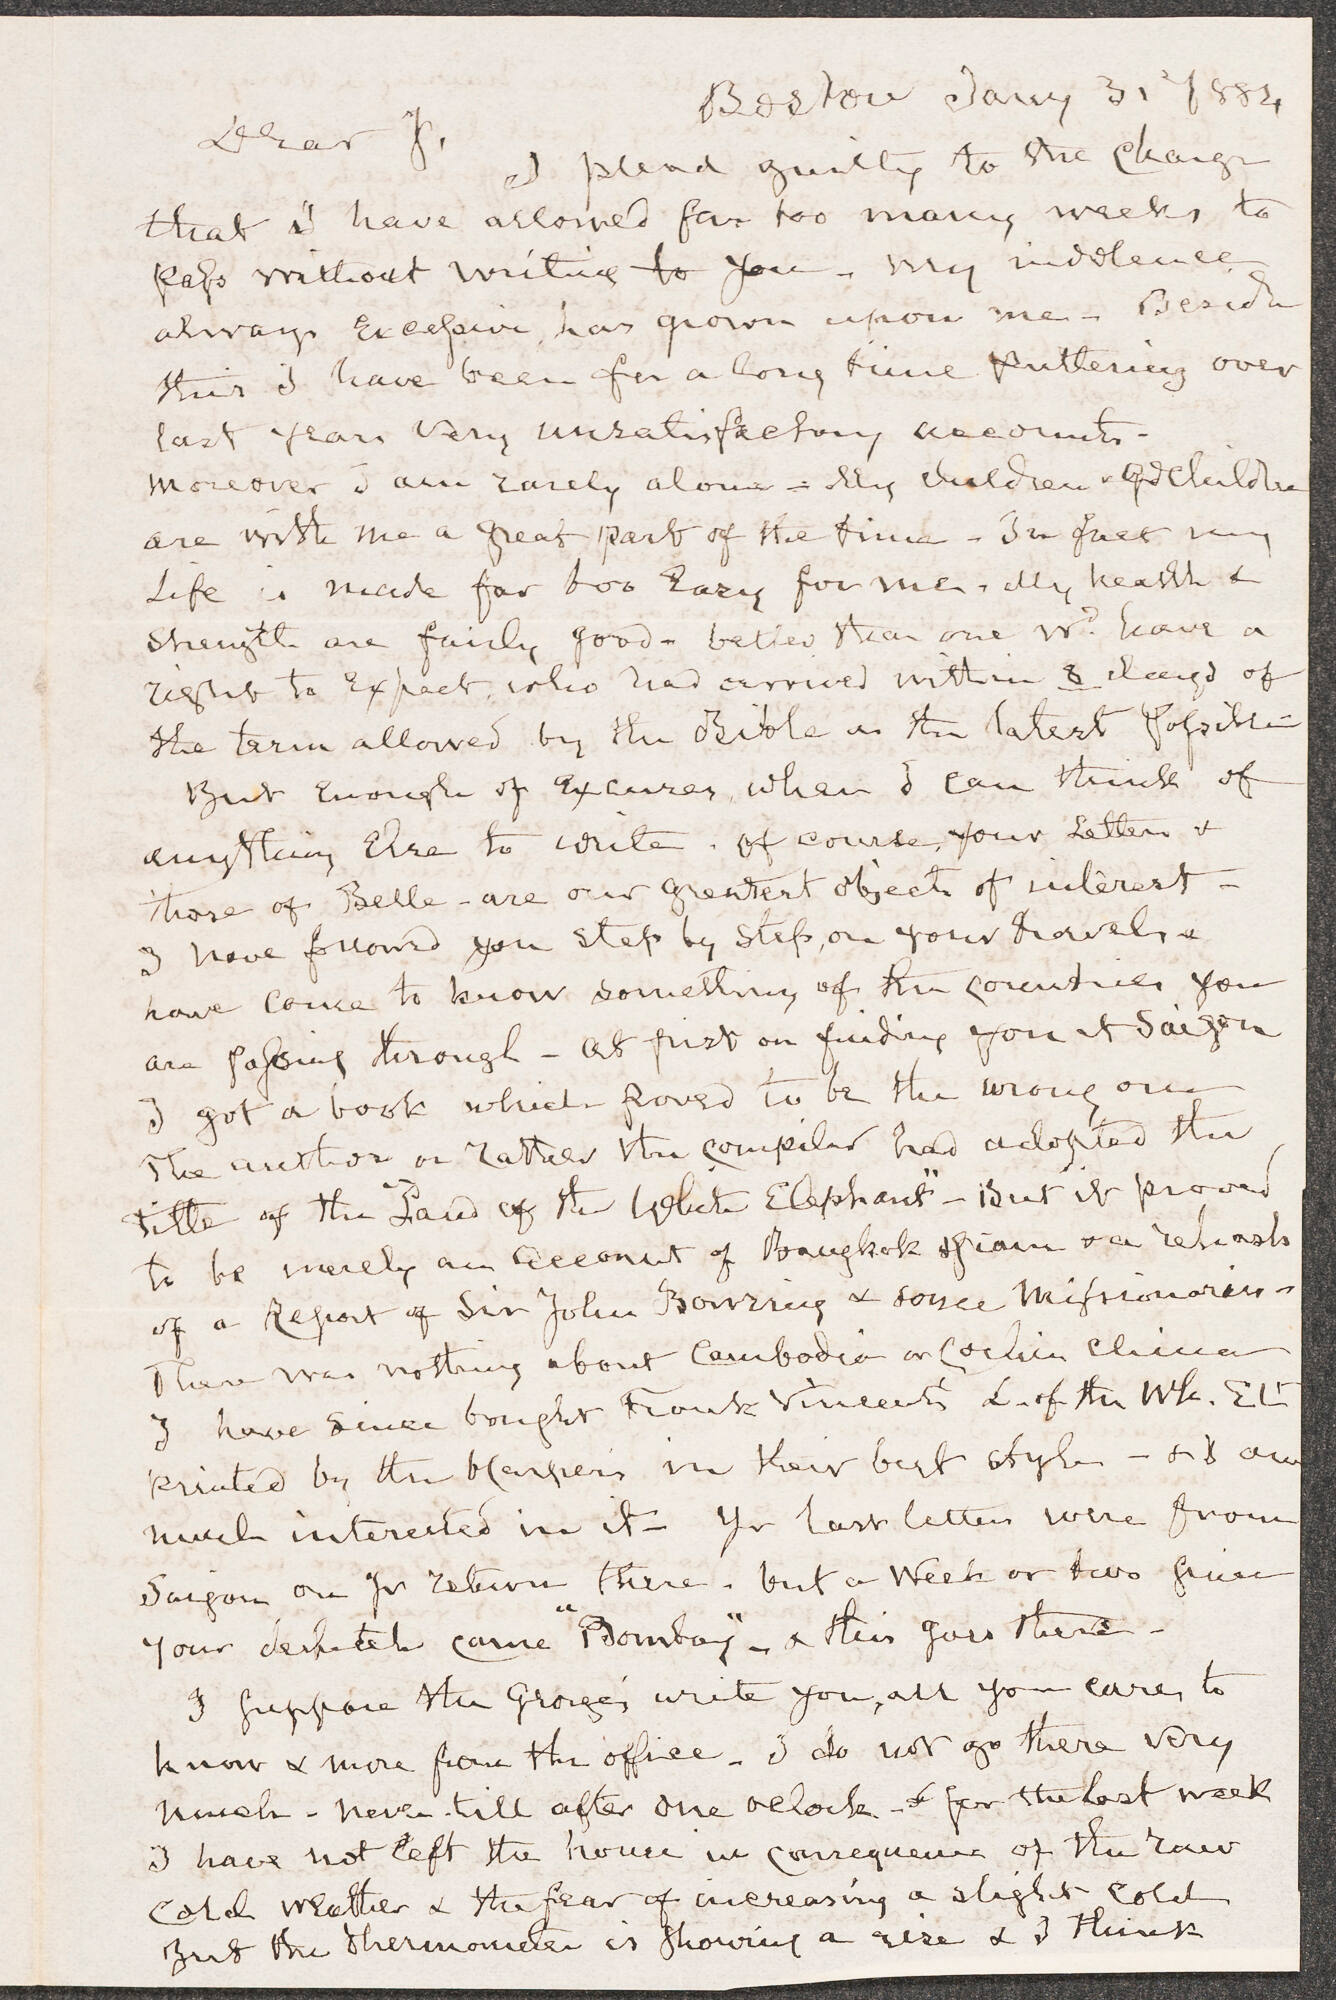 Boston Jany 31st/1884
Dear J.
I plead guilty to the charge
that I have allowed far too many weeks to
pass without writing to you - my indolence
always excessive, has grown upon me - Beside
this I have been for a long time puttering over
last years very unsatisfactory accounts -
moreover I am rarely alone - My children & Gd Children
are with me a great part of the time - In fact my
life is made far too easy for me. My health &
strength are fairly good - better than one wd. have a
right to expect, who had arrived within 8 days of
the term allowed by the Bible as the latest possible
But enough of excuses, when I can think of
anything else to write. Of course, your letters &
those of Belle - are our greatest objects of interest -
I have followed you step by step, on your travels &
have come to know something of the countries you
are passing through - At first on finding you at Saigon
I got a book which proved to be the wrong one
The author or rather the compiler had adopted the
title of the "Land of the White Elephant" - But it proved
to be merely an account of Bangkok Siam & a rehash
of a Report of Sir John Bowring & some Missionaries -
There was nothing about Cambodia or Cochin China
I have since bought Frank Vincent's L. of the Wh. Elt
printed by the Harpers in their best style - & I am
much interested in it - Yr last letters were from
Saigon on yr return there. but a week or two since
your despatch came "Bombay" - & this goes there -
I suppose the George's write you, all you care, to
know & more from the office - I do not go there very
much - never till after one oclock - & for the last week
I have not left the house in consequence of the raw
cold weather & the fear of increasing a slight cold
But the thermometer is showing a rise & I think